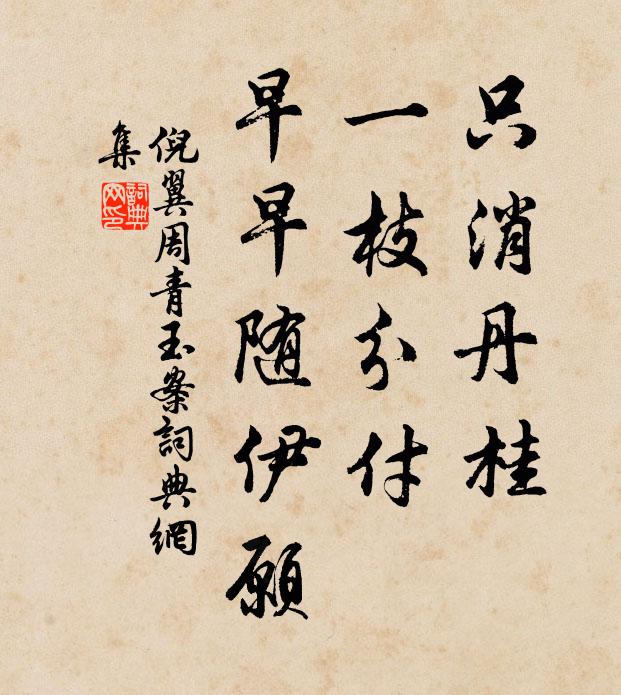 只消丹桂
一枝分付
早早随伊愿
倪翼周青玉案詞典網
集
詞典网印